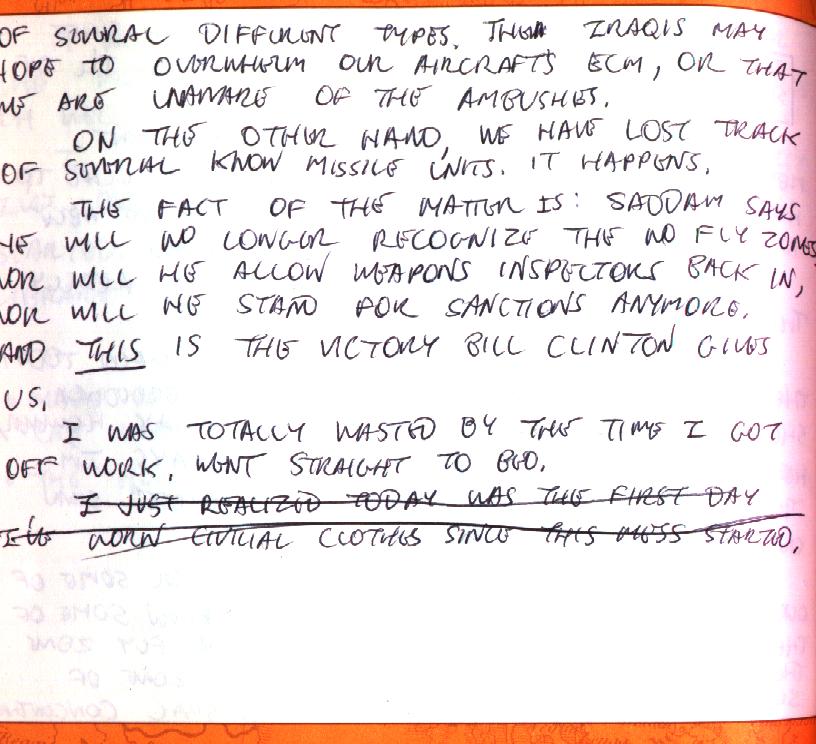 OF SEVERAL DIFFERENT TYPES. THE IRAQIS MAY
HOPE TO OVERWHELM OUR AIRCRAFT'S ECM, OR THAT
WE ARE UNAWARE OF THE AMBUSHES.
ON THE OTHER HAND, WE HAVE LOST TRACK
OF SEVERAL KNOW MISSILE UNITS. IT HAPPENS.
THE FACT OF THE MATTER IS: SADDAM SAYS
HE WILL NO LONGER RECOGNIZE THE NO FLY ZONES,
NOR WILL HE ALLOW WEAPONS INSPECTORS BACK IN,
NOR WILL HE STAND FOR SANCTIONS ANYMORE.
AND THIS IS THE VICTORY BILL CLINTON GIVES
US.
I WAS TOTALLY WASTED BY THE TIME I GOT
OFF WORK. WENT STRAIGHT TO BED.
I JUST REALIZED TODAY WAS THE FIRST DAY
I'VE WORN CIVILIAL CLOTHES SINCE THIS MESS STARTED.